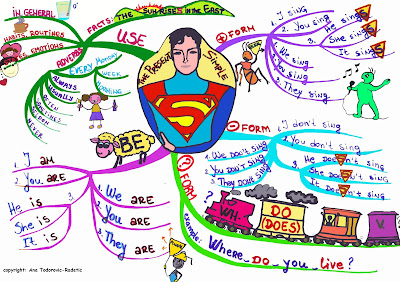 IN GENERAL
HABITS, ROUTINES
EMOTIONS
FACTS: THE SUN RISES IN THE EAST
USE
ADVERBS
EVERY MORNING
WEEK
ALWAYS
USUALLY
OFTEN
SOMETIMES
NEVER
THE PRESENT SIMPLE
S
+ FORM
1. I sing
2. You sing
3. He singS
She singS
It singS
1. We sing
2. You sing
3. They sing
- FORM
1. I don't sing
2. You don't sing
3. He DoeSn't sing
She DoeSn't sing
It DoeSn't sing
1. We don't sing
2. You don't sing
3. They don't sing
BE
1. I am
2. You are
He is
She is
It is
1. We are
2. You are
3. They are
? FORM
?
WH-
DO
(DOES)
V.
example:
Where DO you live?
copyright: Ana Todorovic-Radetic